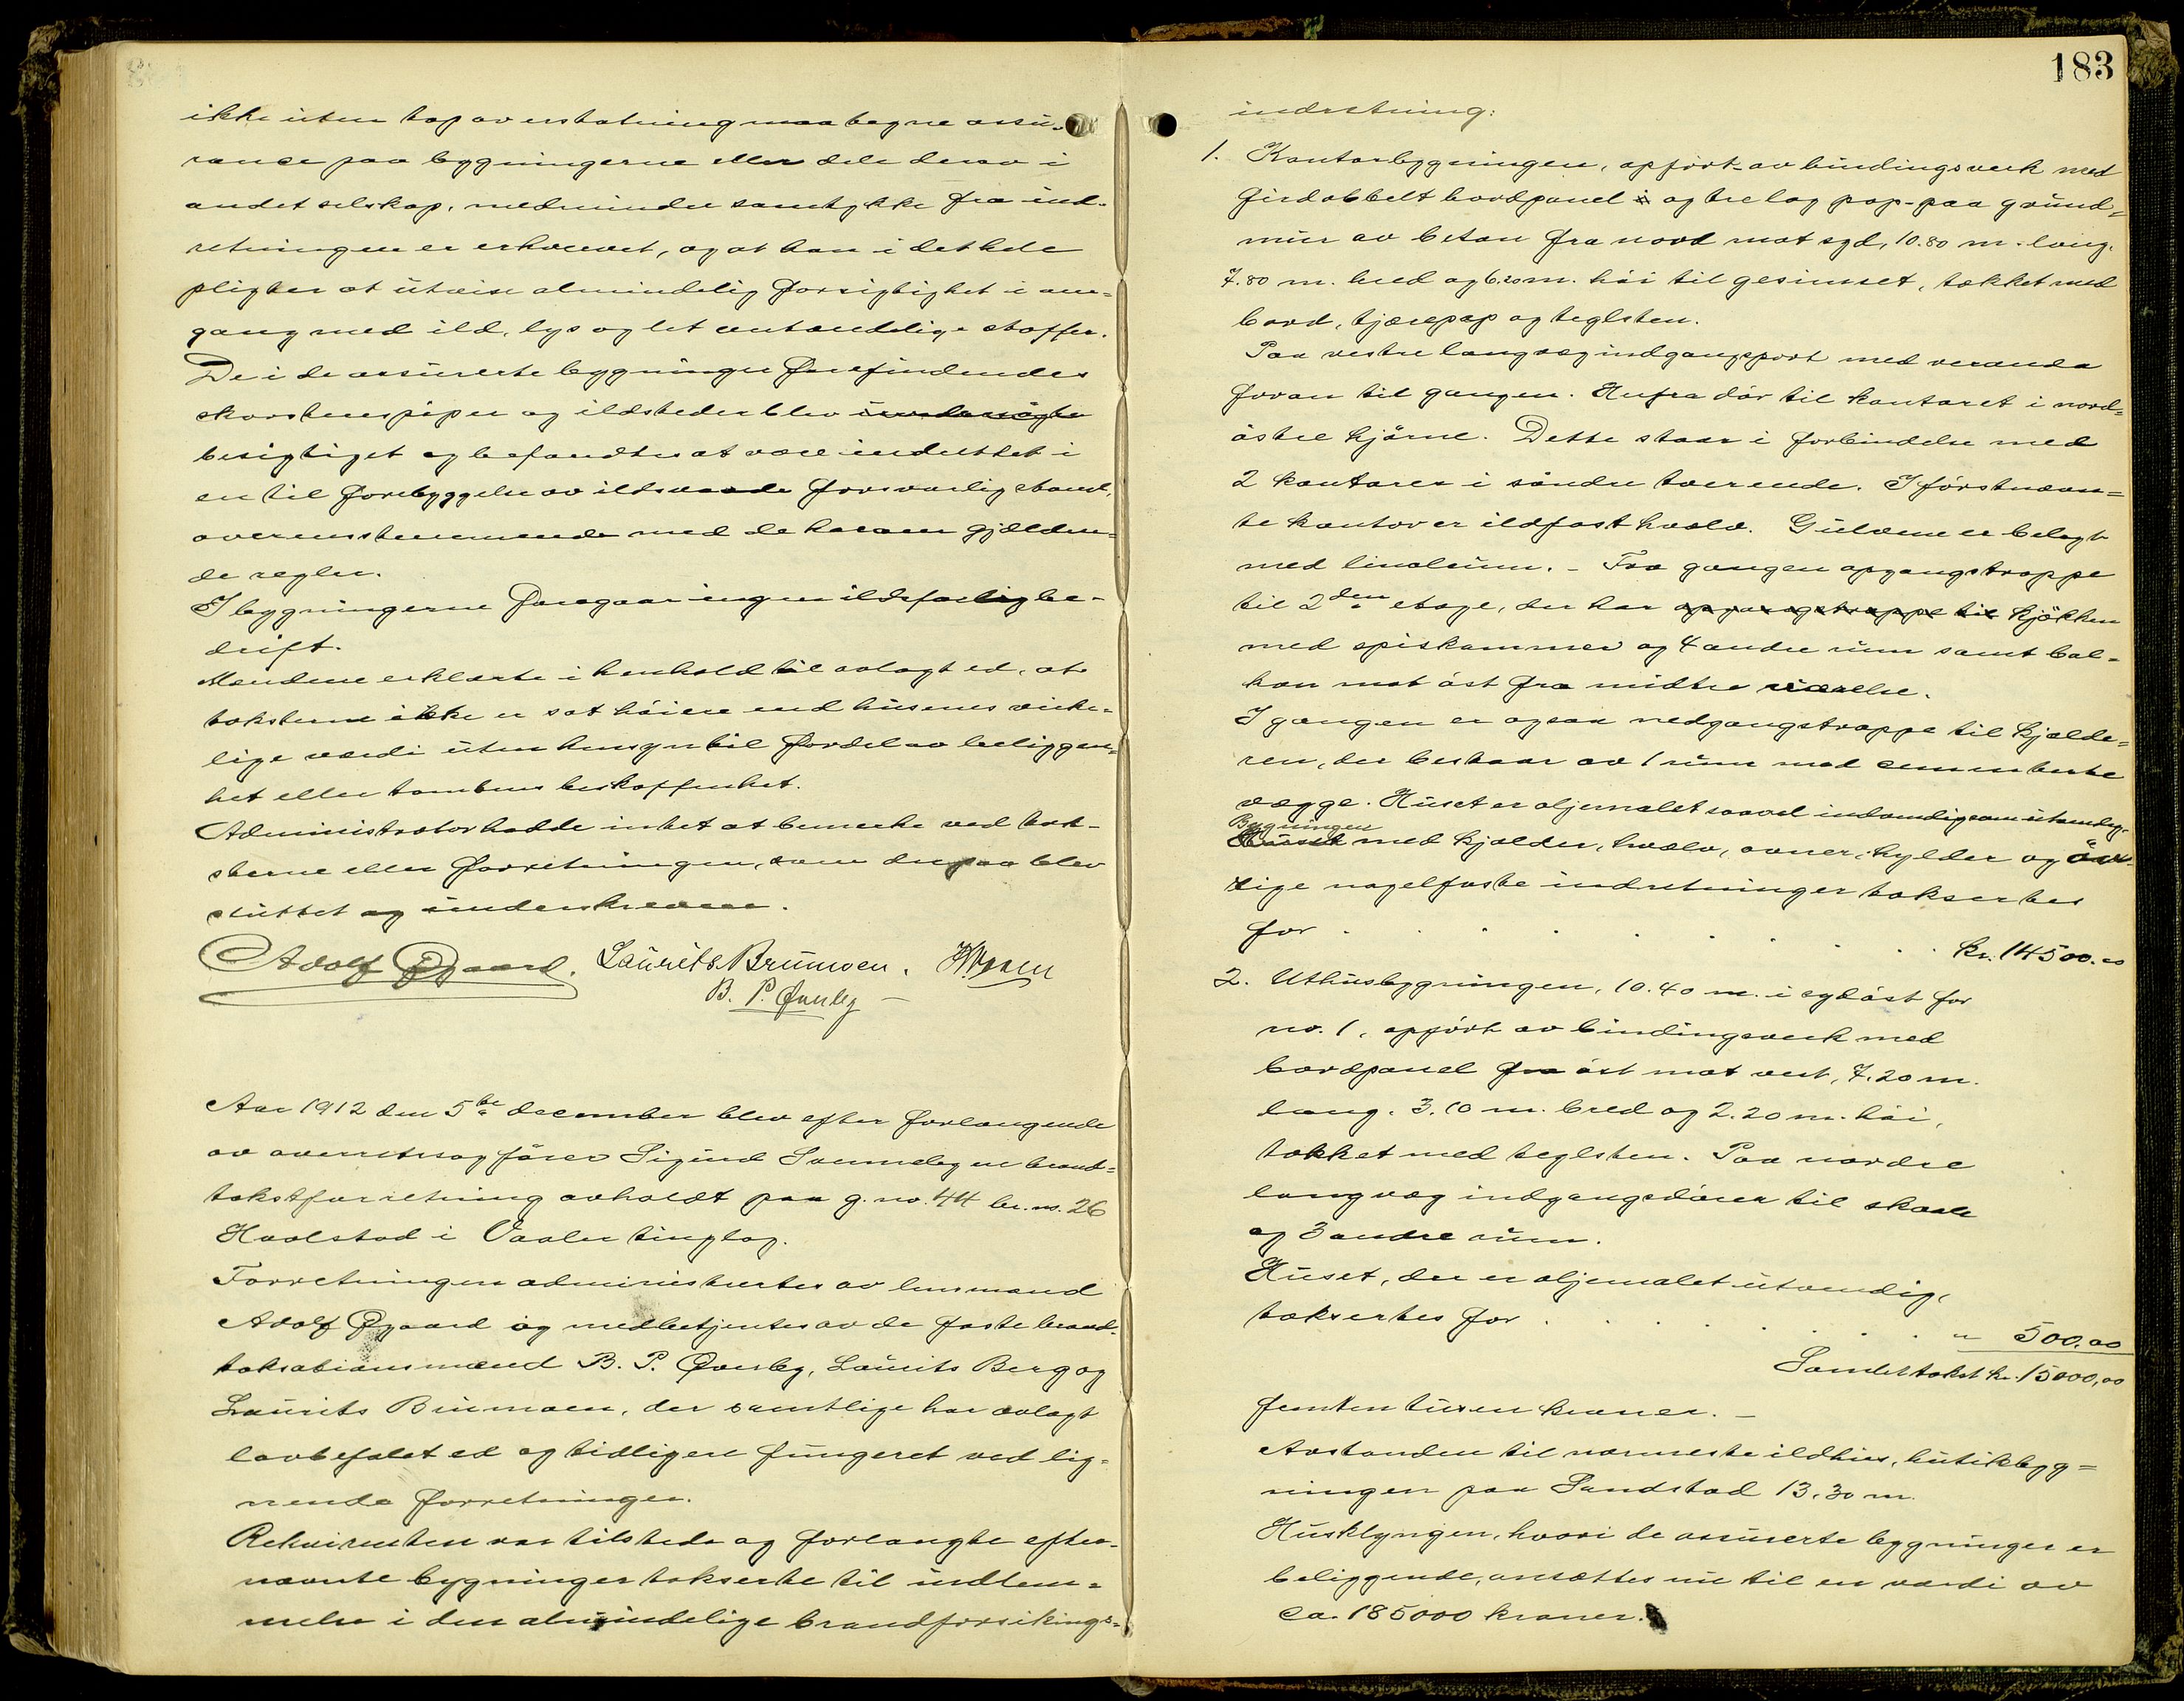 ikke uten tap av erstatning maa tegne assu-
rance paa bygningerne eller dele derav i
andet selskap, medmindre samtykke fra ind-
retningen er erhvervet, og at han i det hele
pligter at utvise almindelig forsigtighet i om-
gang med ild, lys og let antændelige stoffer.
De i de assurerte bygninger forefindendes
skorstenspiper og ildsteder blev undersøgte
besigtiget og befandtes at være indrettet i
en til forebyggelse av ildsvaade forsvarlig stand,
overensstemmende med de herom gjælden-
de regler.
I bygningerne foregaar ingen ildsfarlig be-
drift.
Mændene erklærte i henhold til avlagt ed, at
taksterne ikke er sat høiere end husenes virke-
lige værdi uten hensyn til fordel av beliggen-
het eller tomtens beskaffenhet.
Administrator hadde intet at bemerke ved tak-
sterne eller forretningen, som derpaa blev
sluttet og underskreven.
Adolf Øgaard. Laurits Brumoen.
B. P. Øverby
Aar 1912 den 5te december blev efter forlangende
av overretssagfører Sigurd Svenneby en brand-
takstforretning avholdt paa g. no. 44 br. no. 26
Haalstad i Vaaler tinglag.
Forretningen administrertes av lensmand
Adolf Øgaard og medbetjentes av de faste brand-
taksationsmænd B. P. Øverby, Laurits Berg og
Laurits Brumoen, der samtlige har avlagt
lovbefalet ed og tidligere fungeret ved lig-
nende forretninger.
Rekvirenten var tilstede og forlangte efter-
nævnte bygninger takserte til indlem-
melse i den almindelige brandforsikrings-
183
indretning:
1. Kontorbygningen, opført av bindingsverk med
firdobbelt bordpanel og tre lag pap paa grund-
mur av beton fra nord mot syd, 10.80 m. lang,
7.80 m. bred og 6.20 m. høi til gesimset, tækket med
bord, tjærepap og teglsten.
Paa vestre langvæg indgangsport med veranda
foran til gangen. Herfra dør til kontoret i nord-
østre hjørne. Dette staar i forbindelse med
2 kontorer i søndre tverende. I førstnævn-
te kontor er ildfast hvælv. Gulvene er belagt
med linoleum. - Fra gangen opgangstrappe
til 2den etage, der har opgangstrappe til kjøkken
med spiskammer og 4 andre rum samt bal-
kon mot øst fra midtre værelse.
I gangen er ogsaa nedgangstrappe til kjælde-
ren, der bestaar av 1 rum med cementerte
vægge. Huset er oljemalet saavel indvendig som utvendig.
Bygningen
Huset med kjælder, hvælv, ovner, hylder og øv-
rige nagelfaste indretninger takserdes
for . . . . . . . . kr. 14500.00
2. Uthusbygningen, 10.40 m. i sydøst for
no. 1, opført av bindingsverk med
bordpanel fra øst mot vest, 7.20 m.
lang, 3.10 m. bred og 2.20 m. høi,
tækket med teglsten. Paa nordre
langvæg indgangsdører til skaale
og 3 andre rum.
Huset, der er oljemalet utvendig,
taksertes for . . . . . . . " 500.00
Samlet takst kr. 15000,00
femten tusen kroner. -
Avstanden til nærmeste ildhus, butikbyg-
ningen paa Sandstad 13,30 m.
Husklyngen, hvori de assurerte bygninger er
beliggende, ansættes nu til en værdi av
ca. 185000 kroner.